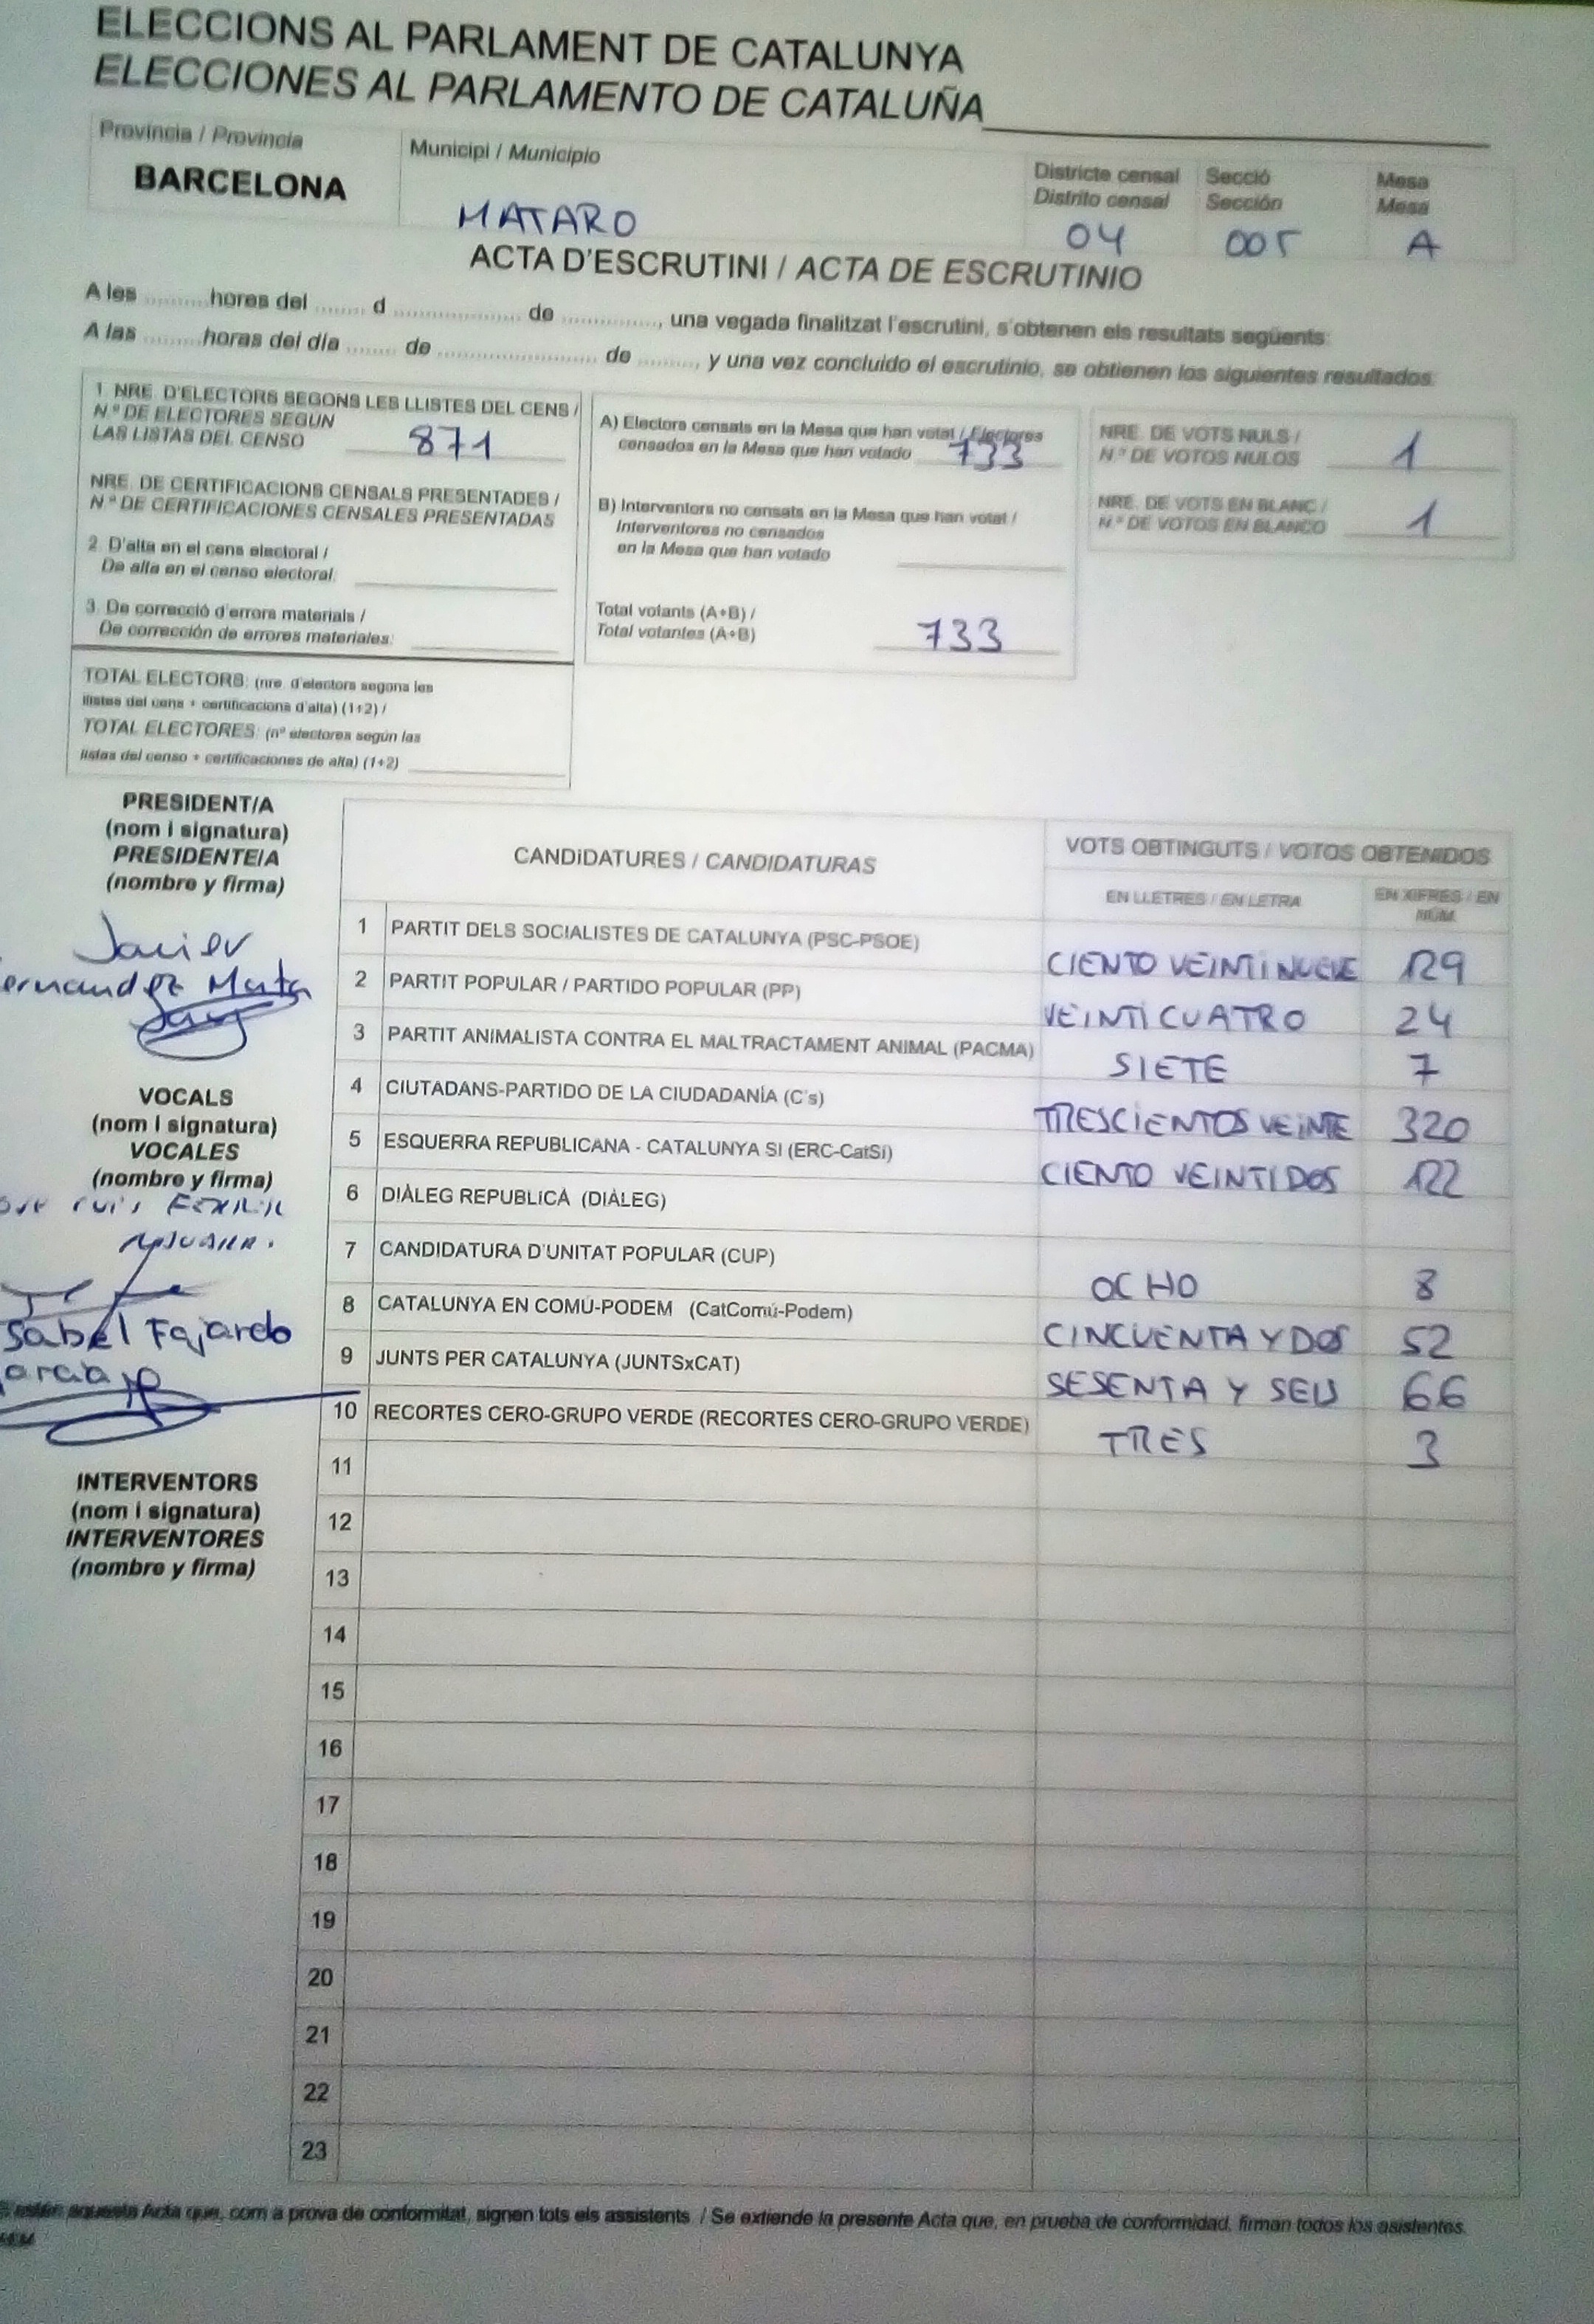 ELECCIONS AL PARLAMENT DE CATALUNYA
ELECCIONES AL PARLAMENTO DE CATALUÑA
Província / Provincia
BARCELONA
Municipi / Municipio
MATARO
Districte censal
Distrito censal
04
Secció
Sección
005
Mesa
Mesa
A
ACTA D'ESCRUTINI / ACTA DE ESCRUTINIO
A les .......... hores del ........ d .................... de ..............., una vegada finalitzat l'escrutini, s'obtenen els resultats següents:
A las ......... horas del día ....... de ......................... de ........., y una vez concluido el escrutinio, se obtienen los siguientes resultados:
1. NRE. D'ELECTORS SEGONS LES LLISTES DEL CENS /
N.º DE ELECTORES SEGÚN
LAS LISTAS DEL CENSO 871
NRE. DE CERTIFICACIONS CENSALS PRESENTADES /
N.º DE CERTIFICACIONES CENSALES PRESENTADAS
2. D'alta en el cens electoral /
De alta en el censo electoral:
3. De correcció d'errors materials /
De corrección de errores materiales:
TOTAL ELECTORS: (nre. d'electors segons les
llistes del cens + certificacions d'alta) (1+2) /
TOTAL ELECTORES: (nº electores según las
listas del censo + certificaciones de alta) (1+2)
A) Electors censats en la Mesa que han votat / Electores
censados en la Mesa que han votado 733
B) Interventors no censats en la Mesa que han votat /
Interventores no censados
en la Mesa que han votado
Total votants (A+B) /
Total votantes (A+B) 733
NRE. DE VOTS NULS /
N.º DE VOTOS NULOS 1
NRE. DE VOTS EN BLANC /
N.º DE VOTOS EN BLANCO 1
PRESIDENT/A
(nom i signatura)
PRESIDENTE/A
(nombre y firma)
Javier
ernandez Mata
VOCALS
(nom i signatura)
VOCALES
(nombre y firma)
sabel Fajardo
arcia
INTERVENTORS
(nom i signatura)
INTERVENTORES
(nombre y firma)
CANDIDATURES / CANDIDATURAS
VOTS OBTINGUTS / VOTOS OBTENIDOS
EN LLETRES / EN LETRA
EN XIFRES / EN
NÚM.
1 PARTIT DELS SOCIALISTES DE CATALUNYA (PSC-PSOE) CIENTO VEINTINUEVE 129
2 PARTIT POPULAR / PARTIDO POPULAR (PP) VEINTICUATRO 24
3 PARTIT ANIMALISTA CONTRA EL MALTRACTAMENT ANIMAL (PACMA) SIETE 7
4 CIUTADANS-PARTIDO DE LA CIUDADANÍA (C's) TRESCIENTOS VEINTE 320
5 ESQUERRA REPUBLICANA - CATALUNYA SI (ERC-CatSí) CIENTO VEINTIDOS 122
6 DIÀLEG REPUBLICÀ (DIÀLEG)
7 CANDIDATURA D'UNITAT POPULAR (CUP) OCHO 8
8 CATALUNYA EN COMÚ-PODEM (CatComú-Podem) CINCUENTA Y DOS 52
9 JUNTS PER CATALUNYA (JUNTSxCAT) SESENTA Y SEIS 66
10 RECORTES CERO-GRUPO VERDE (RECORTES CERO-GRUPO VERDE) TRES 3
11
12
13
14
15
16
17
18
19
20
21
22
23
aquesta Acta que, com a prova de conformitat, signen tots els assistents / Se extiende la presente Acta que, en prueba de conformidad, firman todos los asistentes.